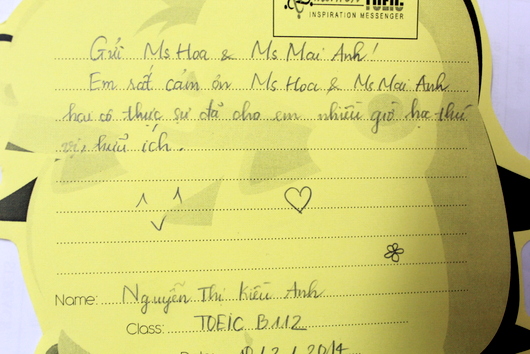 TOEIC
INSPIRATION MESSENGER
Gửi Ms Hoa & Ms Mai Anh!
Em rất cảm ơn Ms Hoa & Ms Mai Anh
hai cô thực sự đã cho em nhiều giờ học thú
vị, hữu ích.
Name: Nguyễn Thị Kiều Anh
Class: TOEIC B112